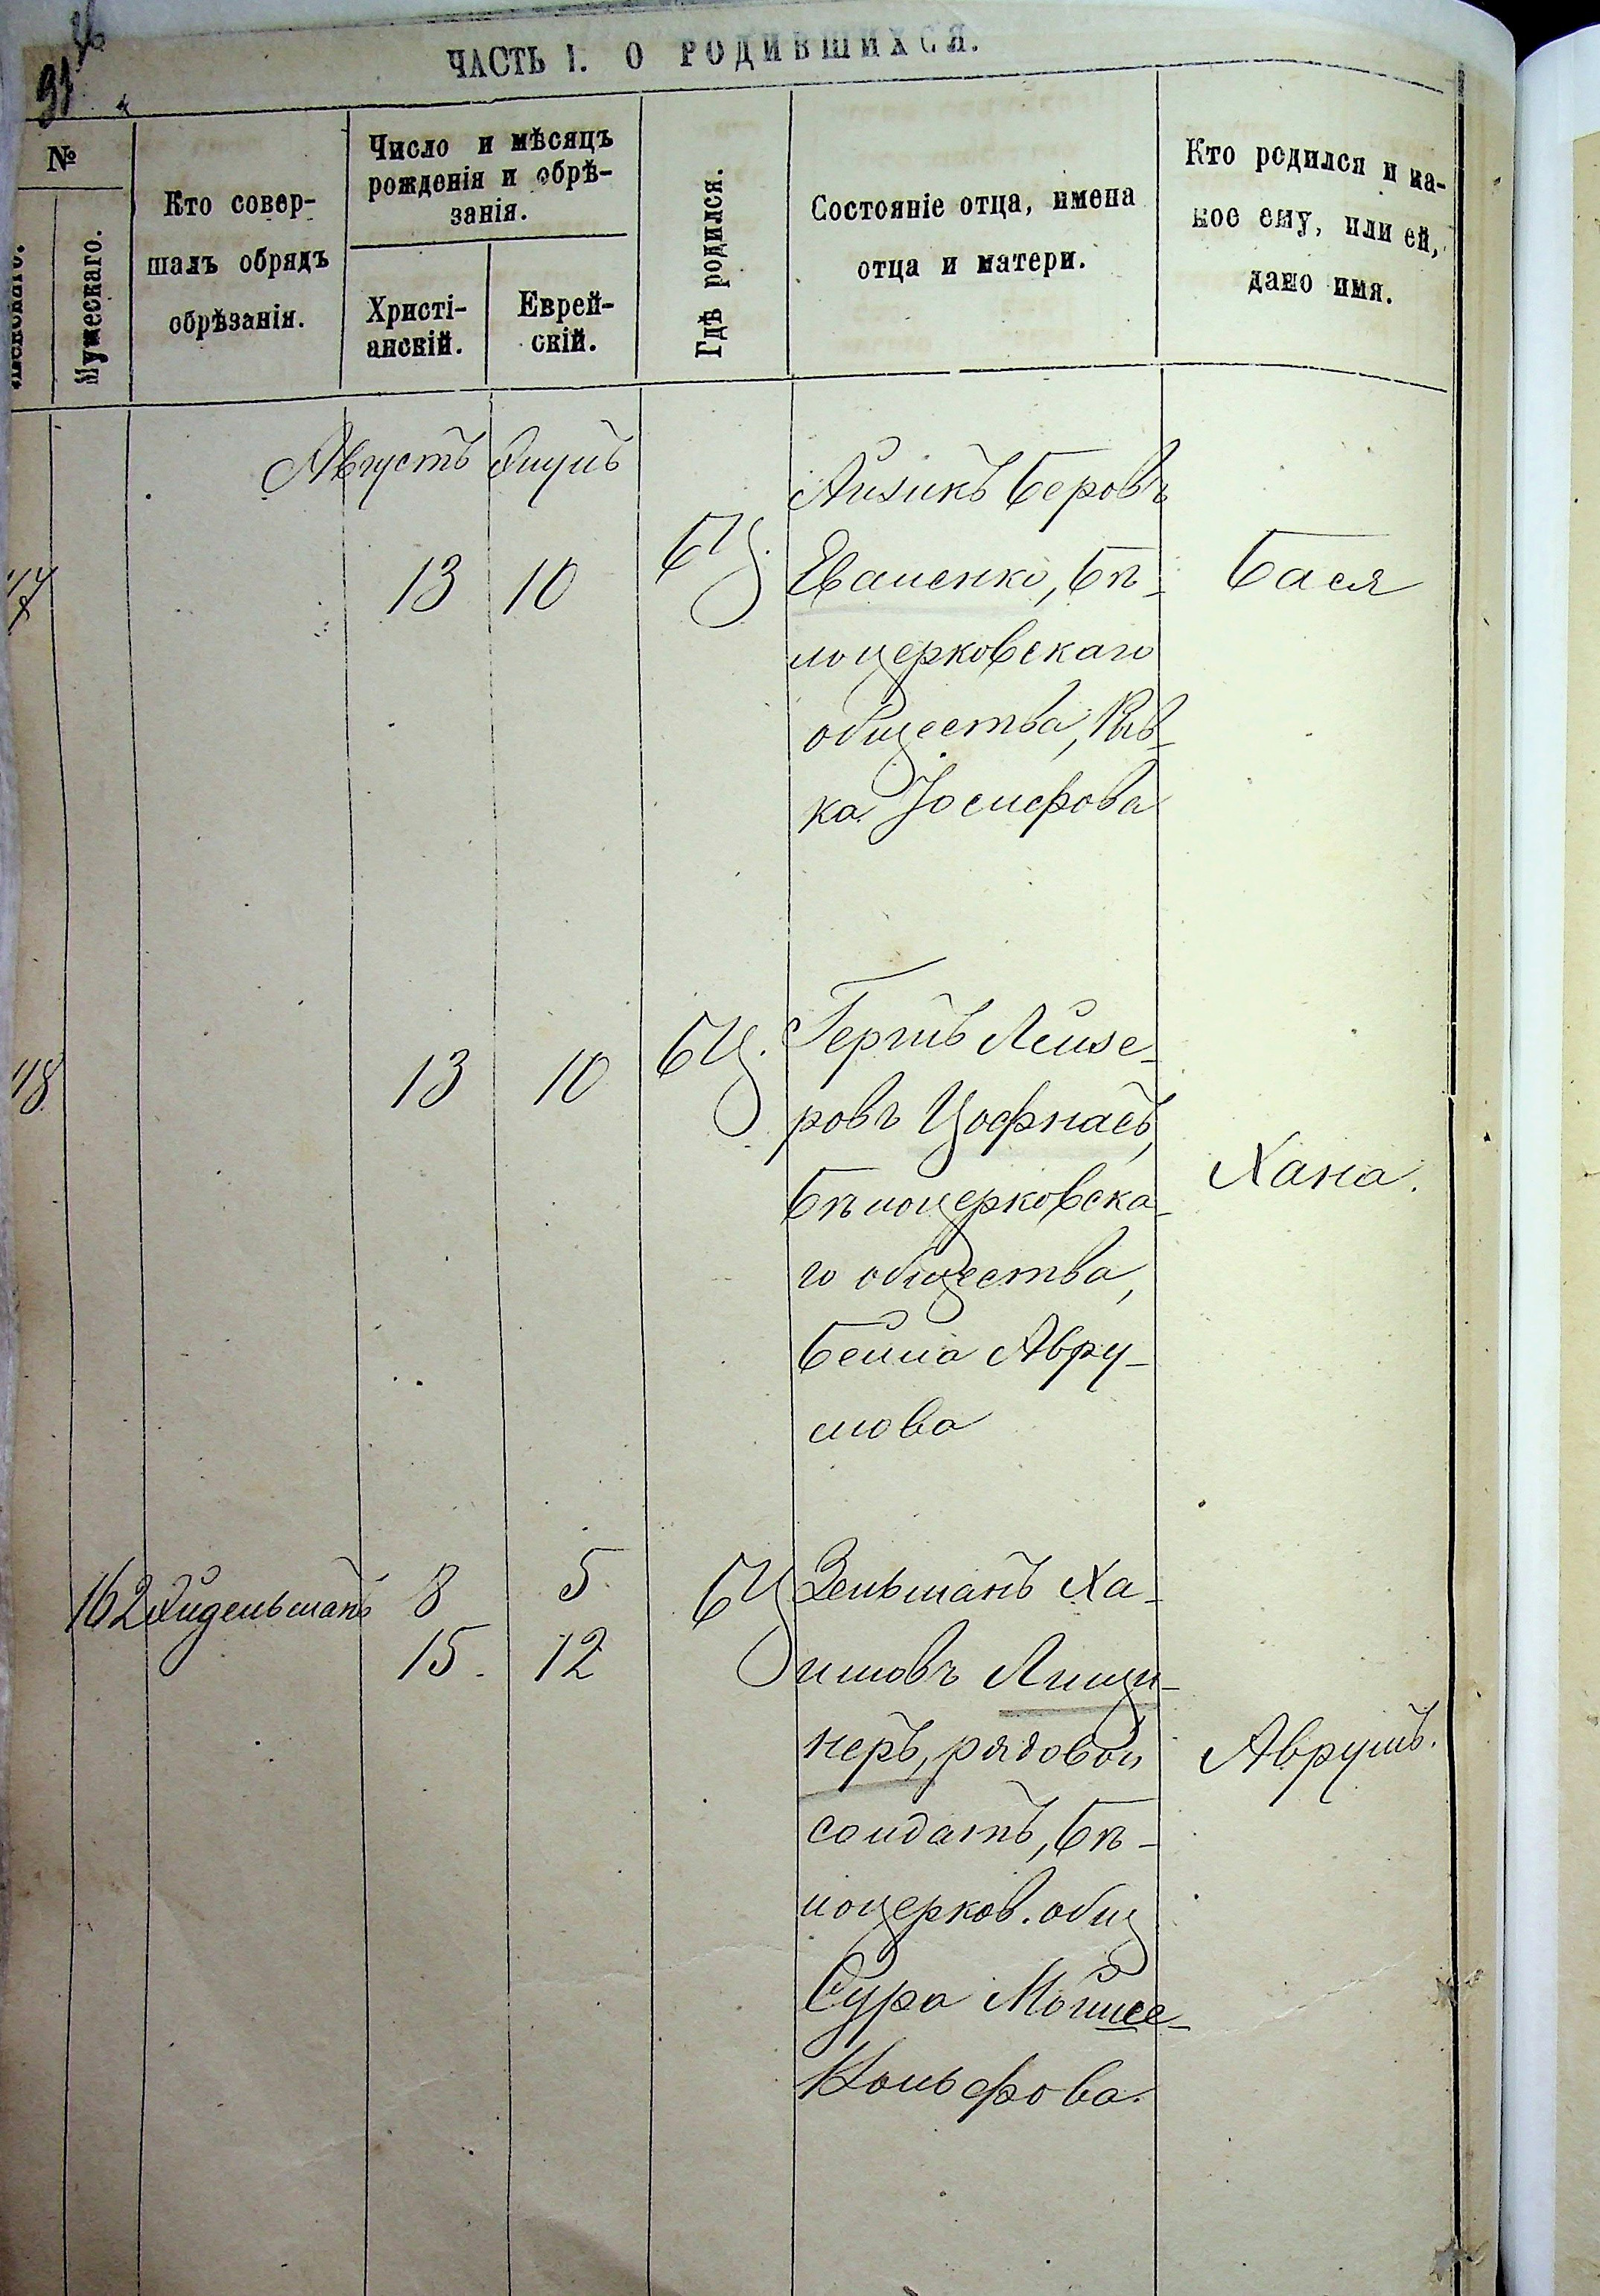 91
ЧАСТЬ I. О РОДИВШИХСЯ.
№
Мужескаго.
Кто совер-
шалъ обрядъ
обрѣзанія.
Число и мѣсяцъ
рожденія и обрѣ-
занія.
Христі-
анскій.
Еврей-
скій.
Гдѣ родился.
Состояніе отца, имена
отца и матери.
Кто родился и ка-
кое ему, или ей,
дано имя.
Августъ
13 10 БЦ.
Айзикъ Беровъ
Еваменко, Бѣ-
лоцерковскаго
общества, Рив-
ка Іосифова
Бася
13 10 БЦ.
Гершъ Лейзе-
ровъ Цофнасъ,
Бѣлоцерковска-
го общества,
Бейла Авру-
мова
Хана.
162
8 5 БЦ
15. 12
Зельманъ Ха-
имовъ Лищи-
неръ, рядовой
солдатъ, Бѣ-
лоцерков. общ
Сура Мойше-
Вольфова.
Аврумъ.